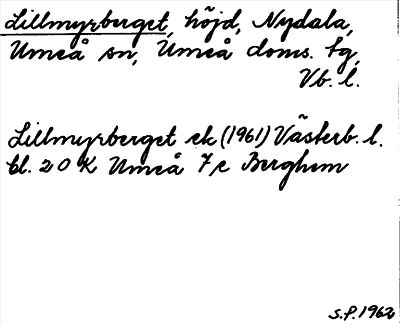 Lillmyrberget, höjd, Nydala,
Umeå sn, Umeå doms. tg,
Vb. l.
Lillmyrberget ek (1961) Västerb. l.
bl. 20 K Umeå 7c Berghem
S.P. 1962